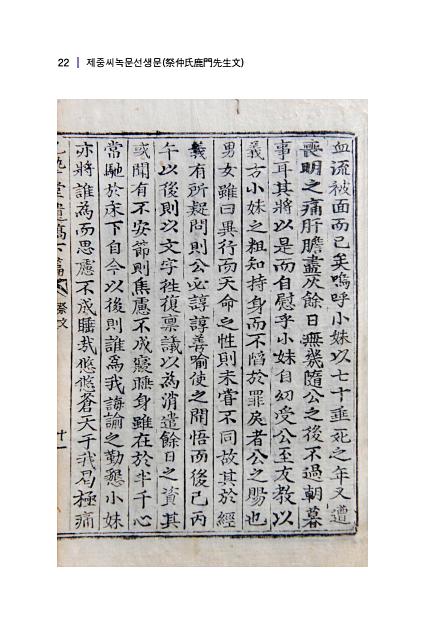 22 | 제중씨녹문선생문(祭仲氏鹿門先生文)
血流被面而已矣嗚呼小妹以七十垂死之年又遭
喪明之痛肝膽盡灰餘日無幾隨公之後不過朝暮
事耳其將以是而自慰乎小妹自幼受公至友教以
義方小妹之粗知持身而不陷於罪戾者公之賜也
男女雖曰異行而天命之性則未嘗不同故其於經
義有所疑問則公必諄諄善喻使之開悟而後已丙
午以後則以文字徃復稟議以為消遣餘日之資其
或聞有不安節則焦慮不成寢睡身雖在於半千心
常馳於床下自今以後則誰爲我誨諭之勤懇小妹
亦將誰為而思慮不成睡哉悠悠蒼天于我曷極痛
堂遺稿下篇 祭文 十一